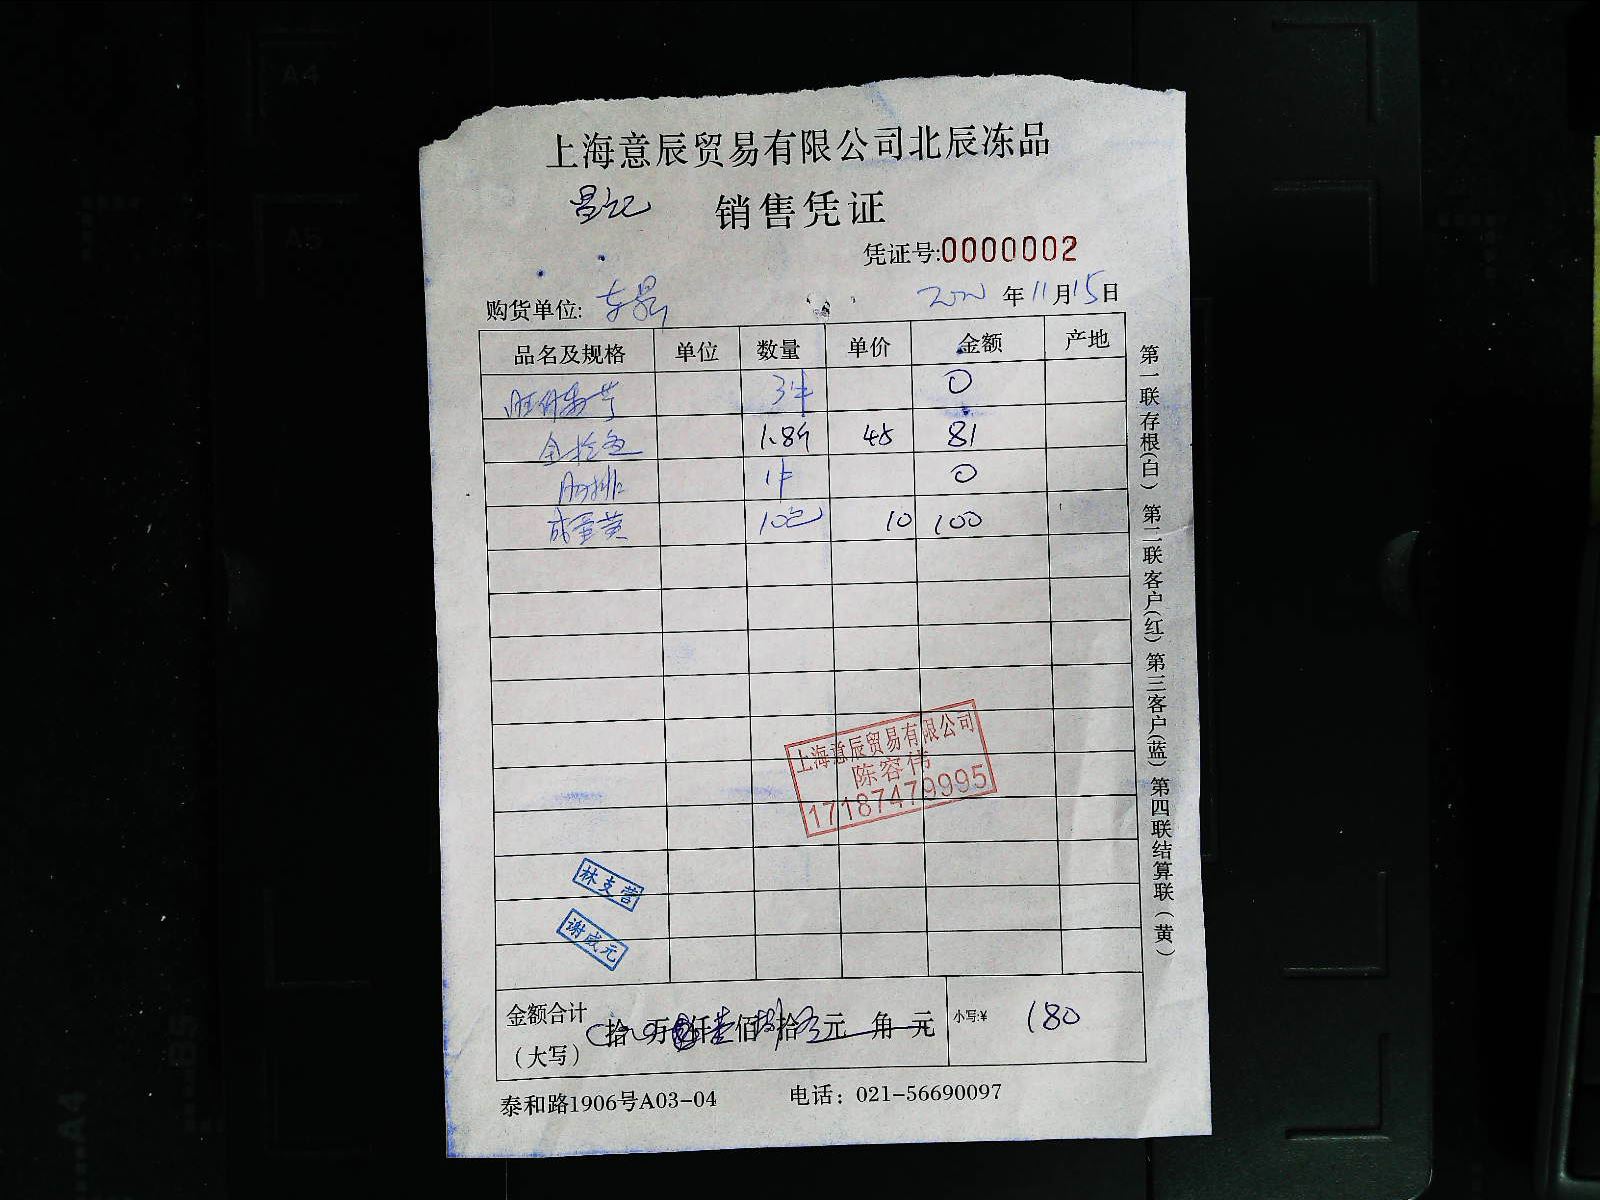 上海意辰贸易有限公司北辰冻品
昌记 销售凭证
凭证号:0000002
购货单位: 年11月15日
品名及规格 单位 数量 单价 金额 产地
3件 0
1.8斤 45 81
1件 0
咸蛋黄 10包 10 100
上海意辰贸易有限公司
陈容伟
17187479995
林支营
谢成元
金额合计
（大写） 拾 万 仟 佰 拾 元 角 元 小写:¥ 180
泰和路1906号A03-04 电话：021-56690097
第一联存根(白) 第二联客户(红) 第三客户(蓝) 第四联结算联（黄）
A4
A5
A4